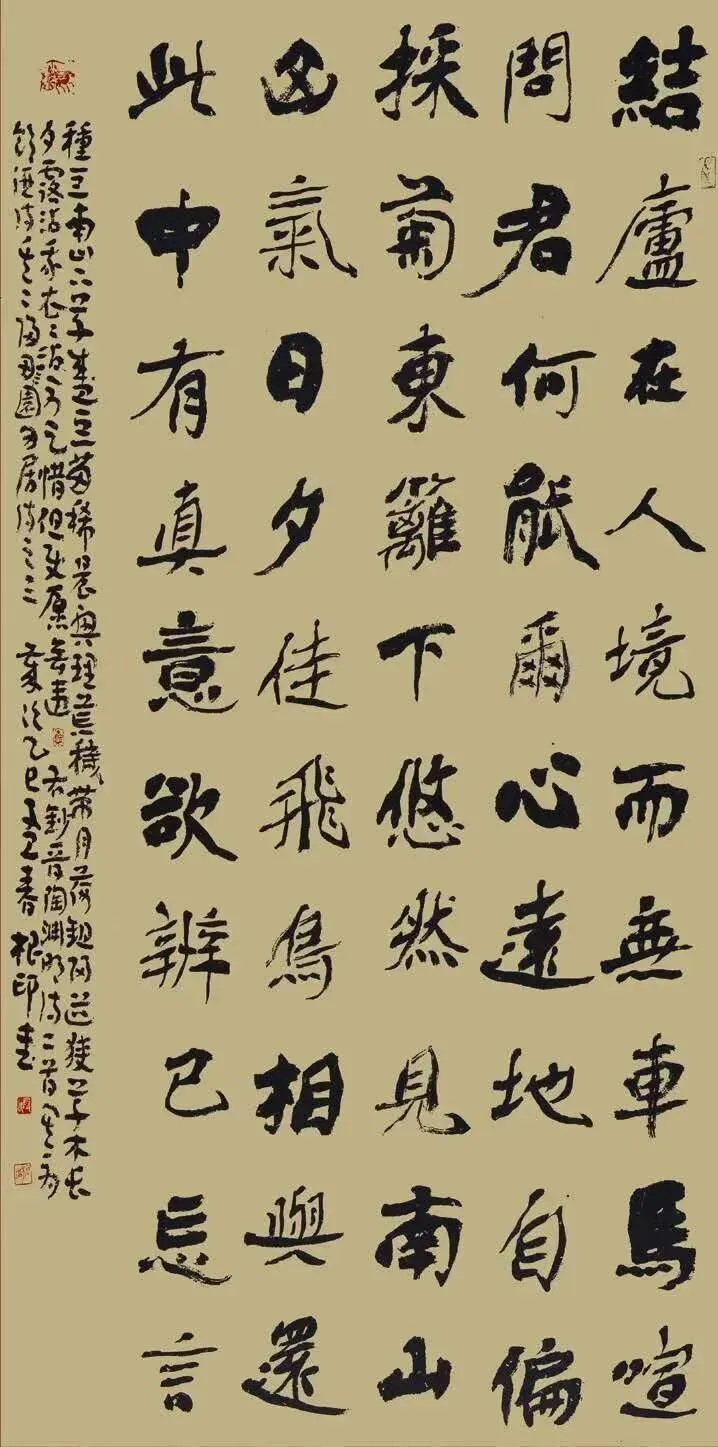 結廬在人境而無車馬喧
問君何能爾心遠地自偏
採菊東籬下悠然見南山
山氣日夕佳飛鳥相與還
此中有真意欲辨已忘言
種豆南山下草盛豆苗稀晨興理荒穢帶月荷鋤歸道狹草木長
夕露沾我衣〻沾不足惜但使願無違 右鈔晉陶淵明詩二首其一為
飲酒詩其二歸田園居詩之三 歲次乙巳春 根印書